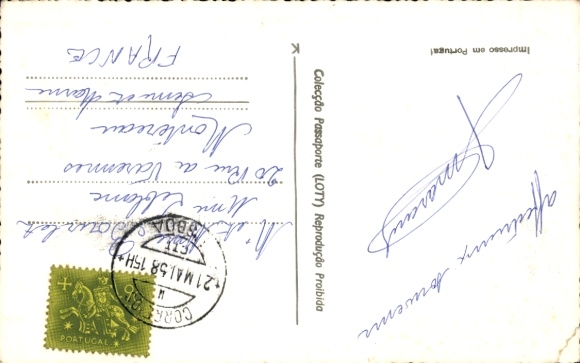 affectueux souvenir
Impresso em Portugal
Colecção Passaporte (LOTY) Reprodução Proibida
CORREIOS
21 MAI.58 15H
LISBOA
PORTUGAL
Mme Leblanc
20 Rue a Varennes
Montereau
Seine et Marne
FRANCE